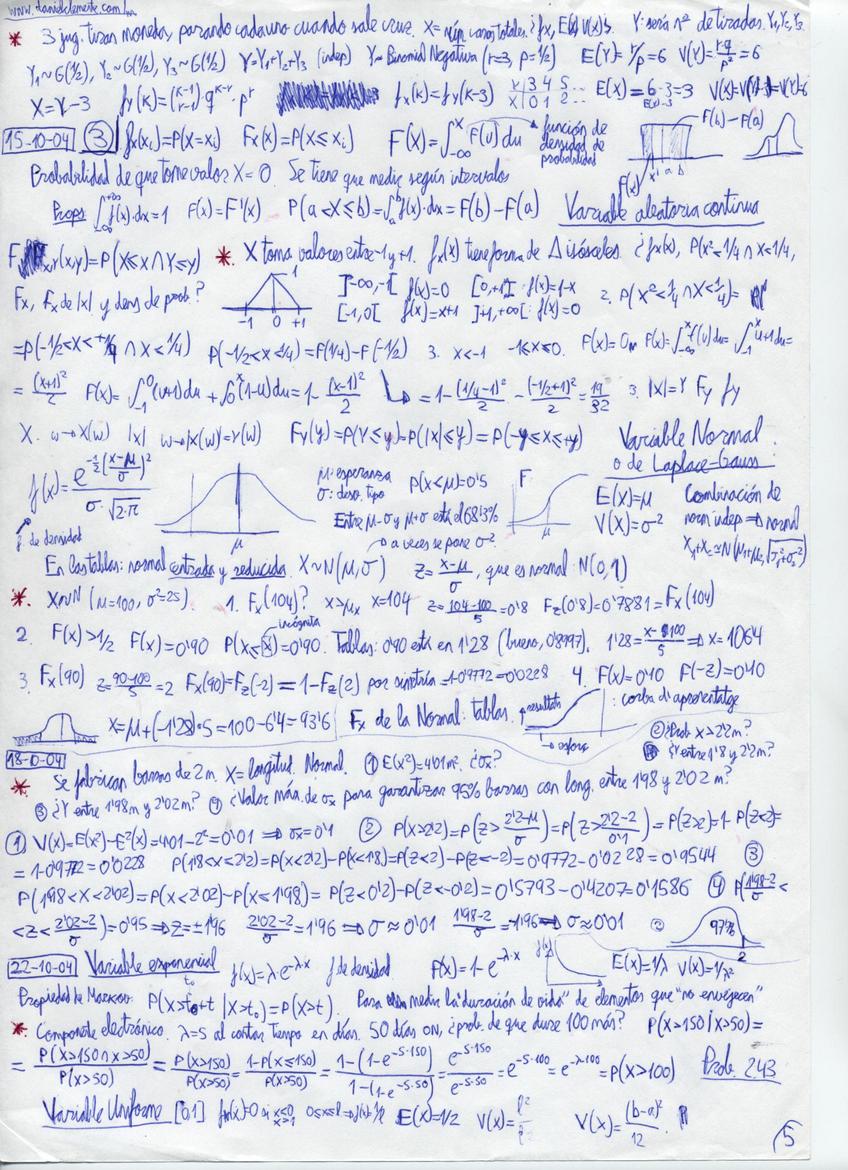 www.danielclemente.com
* 3 jug. tiran moneda, parando cada uno cuando sale cruz. X = núm caras totales. ¿fx, E(X) V(X)? Y: será nº de tiradas. Y1, Y2, Y3
Y1~G(1/2), Y2~G(1/2), Y3~G(1/2) Y=Y1+Y2+Y3 (indep) Y~Binomial Negativa (r=3, p=1/2) E(Y)=r/p=6 V(Y)=rq/p²=6
X=Y-3 fy(k)=(k-1 r-1) q^(k-r)·p^r fx(k)=fy(k-3) Y|3 4 5... X|0 1 2... E(X)=6-3=3 E(Y)-3 V(X)=V(Y-3)=V(Y)=6
15-10-04 (3) fx(xi)=P(X=xi) Fx(X)=P(X≤xi) F(X)=∫_-∞^x f(u)du función de densidad de probabilidad F(b)-F(a)
Probabilidad de que tome valor X=0 Se tiene que medir según intervalos F(x) x a b
Props ∫_-∞^+∞ f(x)·dx=1 f(x)=F'(x) P(a<X≤b)=∫_a^b f(x)·dx=F(b)-F(a) Variable aleatoria continua
F x,y(x,y)=P(X≤x∩Y≤y) * X toma valores entre -1 y +1. fx(x) tiene forma de Δ isósceles. ¿fx(x), P(x²<1/4∩X<1/4),
Fx, fx de |x| y dens de prob? 1 -1 0 +1 ]-∞,-1[ f(x)=0 [0,+1]: f(x)=1-x 2. P(x²<1/4∩X<1/4)=
[-1,0[ f(x)=x+1 ]+1,+∞[: f(x)=0
=P(-1/2<x<+1/4∩X<1/4) P(-1/2<x<1/4)=F(1/4)-F(-1/2) 3. x<-1 -1≤x≤0. F(x)=0 F(x)=∫_-∞^x f(u)du=∫_-1^x u+1du=
=(x+1)²/2 F(x)=∫_-1^0(u+1)du+∫_0^x(1-u)du=1-(x-1)²/2 =1-(1/4-1)²/2-(-1/2+1)²/2=19/32 3. |X|=Y Fy fy
X. w→X(w) |X| w→|X(w)|=Y(w) Fy(y)=P(Y≤y)=P(|X|≤y)=P(-y≤X≤+y) Variable Normal
o de Laplace-Gauss
f(x)=e^(-1/2((x-μ)/σ)²)/(σ·√2·π) μ: esperanza σ: desv. tipo P(X<μ)=0'5 F E(X)=μ Combinación de
Entre μ-σ y μ+σ está el 68'3% V(X)=σ² norm indep ⇒ normal
f. de densidad μ a veces se pone σ² μ X1+X2~N(μ1+μ2, √σ1²+σ2²)
En las tablas: normal centrada y reducida. X~N(μ,σ) Z=(x-μ)/σ, que es normal N(0,1)
* X~N(μ=100, σ²=25). 1. Fx(104)? x>μx x=104 z=(104-100)/5=0'8 Fz(0'8)=0'7881=Fx(104)
2. F(x)>1/2 F(x)=0'90 P(X≤x)=0'90. incógnita Tablas: 0'90 está en 1'28 (bueno, 0'8997). 1'28=(x-100)/5 ⇒ x=106'4
3. Fx(90) z=(90-100)/5=2 Fx(90)=Fz(-2)=1-Fz(2) por simetría=1-0'9772=0'0228 4. F(x)=0'10 F(-z)=0'10
x=μ+(-1'28)·5=100-6'4=93'6 Fx de la Normal: tablas. resultats esforç : corba d'aprenentatge
18-10-04 (2) ¿Prob. X>2'2m?
* Se fabrican barras de 2m. X=longitud. Normal. (1) E(x²)=4'01m². ¿σx? ¿Y entre 1'8 y 2'2m?
(3) ¿Y entre 1'98m y 2'02m? (4) ¿Valor máx. de σx para garantizar 95% barras con long. entre 1'98 y 2'02 m?
(1) V(X)=E(X²)-E²(X)=4'01-2²=0'01 ⇒ σx=0'1 (2) P(X>2'2)=P(Z>(2'2-μ)/σ)=P(Z>(2'2-2)/0'1)=P(Z>2)=1-P(Z<2)=
=1-0'9772=0'0228 P(1'8<X<2'2)=P(X<2'2)-P(X<1'8)=P(Z<2)-P(Z<-2)=0'9772-0'0228=0'9544 (3)
P(1'98<X<2'02)=P(X<2'02)-P(X≤1'98)=P(Z<0'2)-P(Z<-0'2)=0'5793-0'4207=0'1586 (4) P((1'98-2)/σ<
<Z<(2'02-2)/σ)=0'95 ⇒ Z=±1'96 (2'02-2)/σ=1'96 ⇒ σ≈0'01 (1'98-2)/σ=-1'96 ⇒ σ≈0'01 (2) 97% 2
22-10-04 Variable exponencial f(x)=λ·e^(-λ·x) f de densidad F(x)=1-e^(-λ·x) f(x) E(X)=1/λ V(X)=1/λ²
Propiedad de Markov: P(X>t0+t|X>t0)=P(X>t). Para medir la "duración de vida" de elementos que "no envejecen"
* Componente electrónico. λ=5 al contar tiempo en días. 50 días ON, ¿prob. de que dure 100 más? P(X>150|X>50)=
=P(X>150∩X>50)/P(X>50)=P(X>150)/P(X>50)=1-P(X≤150)/P(X>50)=1-(1-e^(-5·150))/1-(1-e^(-5·50))=e^(-5·150)/e^(-5·50)=e^(-5·100)=e^(-λ·100)=P(X>100) Prob. 243
Variable Uniforme [0,1] fx(x)=0 si x<0 x>1 E(X)=1/2 V(X)= V(X)=(b-a)²/12
5